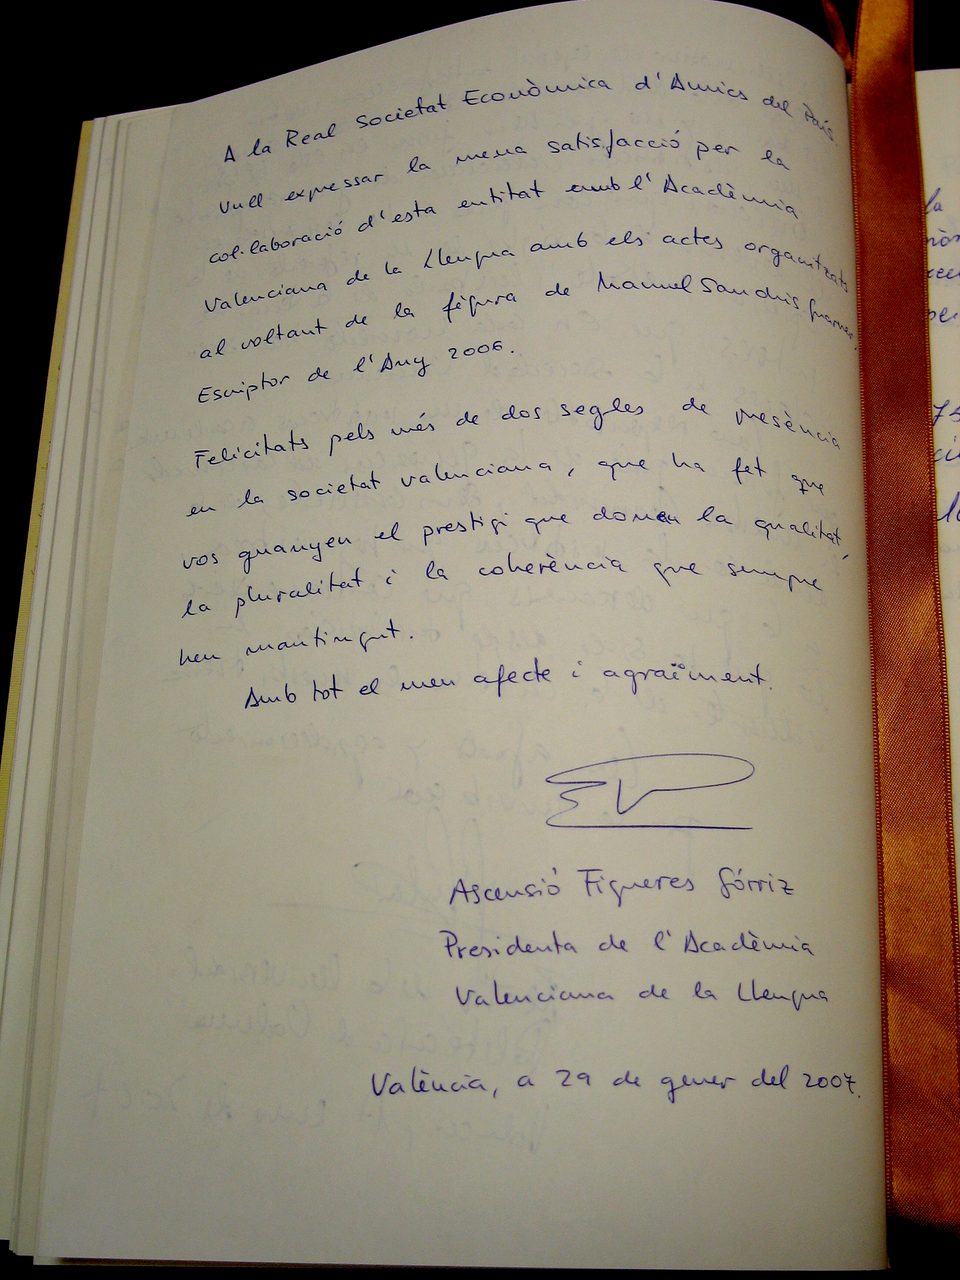 A la Real Societat Econòmica d'Amics del País
vull expressar la meua satisfacció per la
col·laboració d'esta entitat amb l'Acadèmia
Valenciana de la Llengua amb els actes organitzats
al voltant de la figura de Manuel Sanchis Guarner.
Escriptor de l'Any 2006.
Felicitats pels més de dos segles de presència
en la societat valenciana, que ha fet que
vos guanyeu el prestigi que donen la qualitat,
la pluralitat i la coherència que sempre
heu mantingut.
Amb tot el meu afecte i agraïment.
Ascensió Figueres Górriz
Presidenta de l'Acadèmia
Valenciana de la Llengua
València, a 29 de gener del 2007.